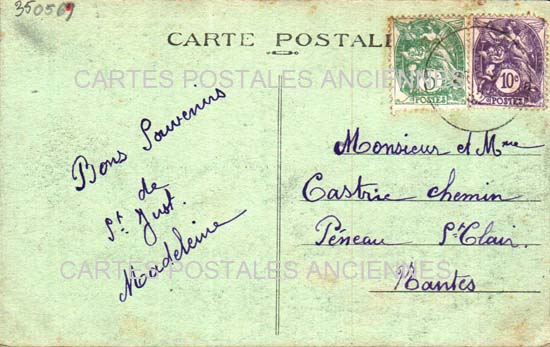 350569
CARTE POSTALE
CARTES POSTALES ANCIENNES
5c
POSTES
10c
POSTES
Bons Souvenirs
de
St Just.
Madeleine
Monsieur et Mme
Castrie chemin
Péneau St Clair.
Nantes
CARTES POSTALES ANCIENNES